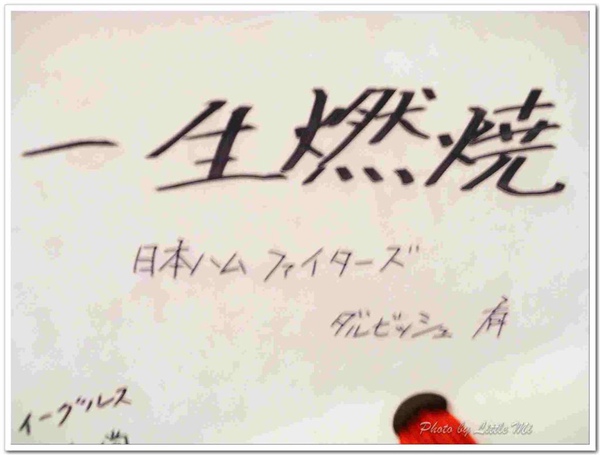 一生燃焼
日本ハムファイターズ
ダルビッシュ 有
イーグルス
Photo by Little Mi